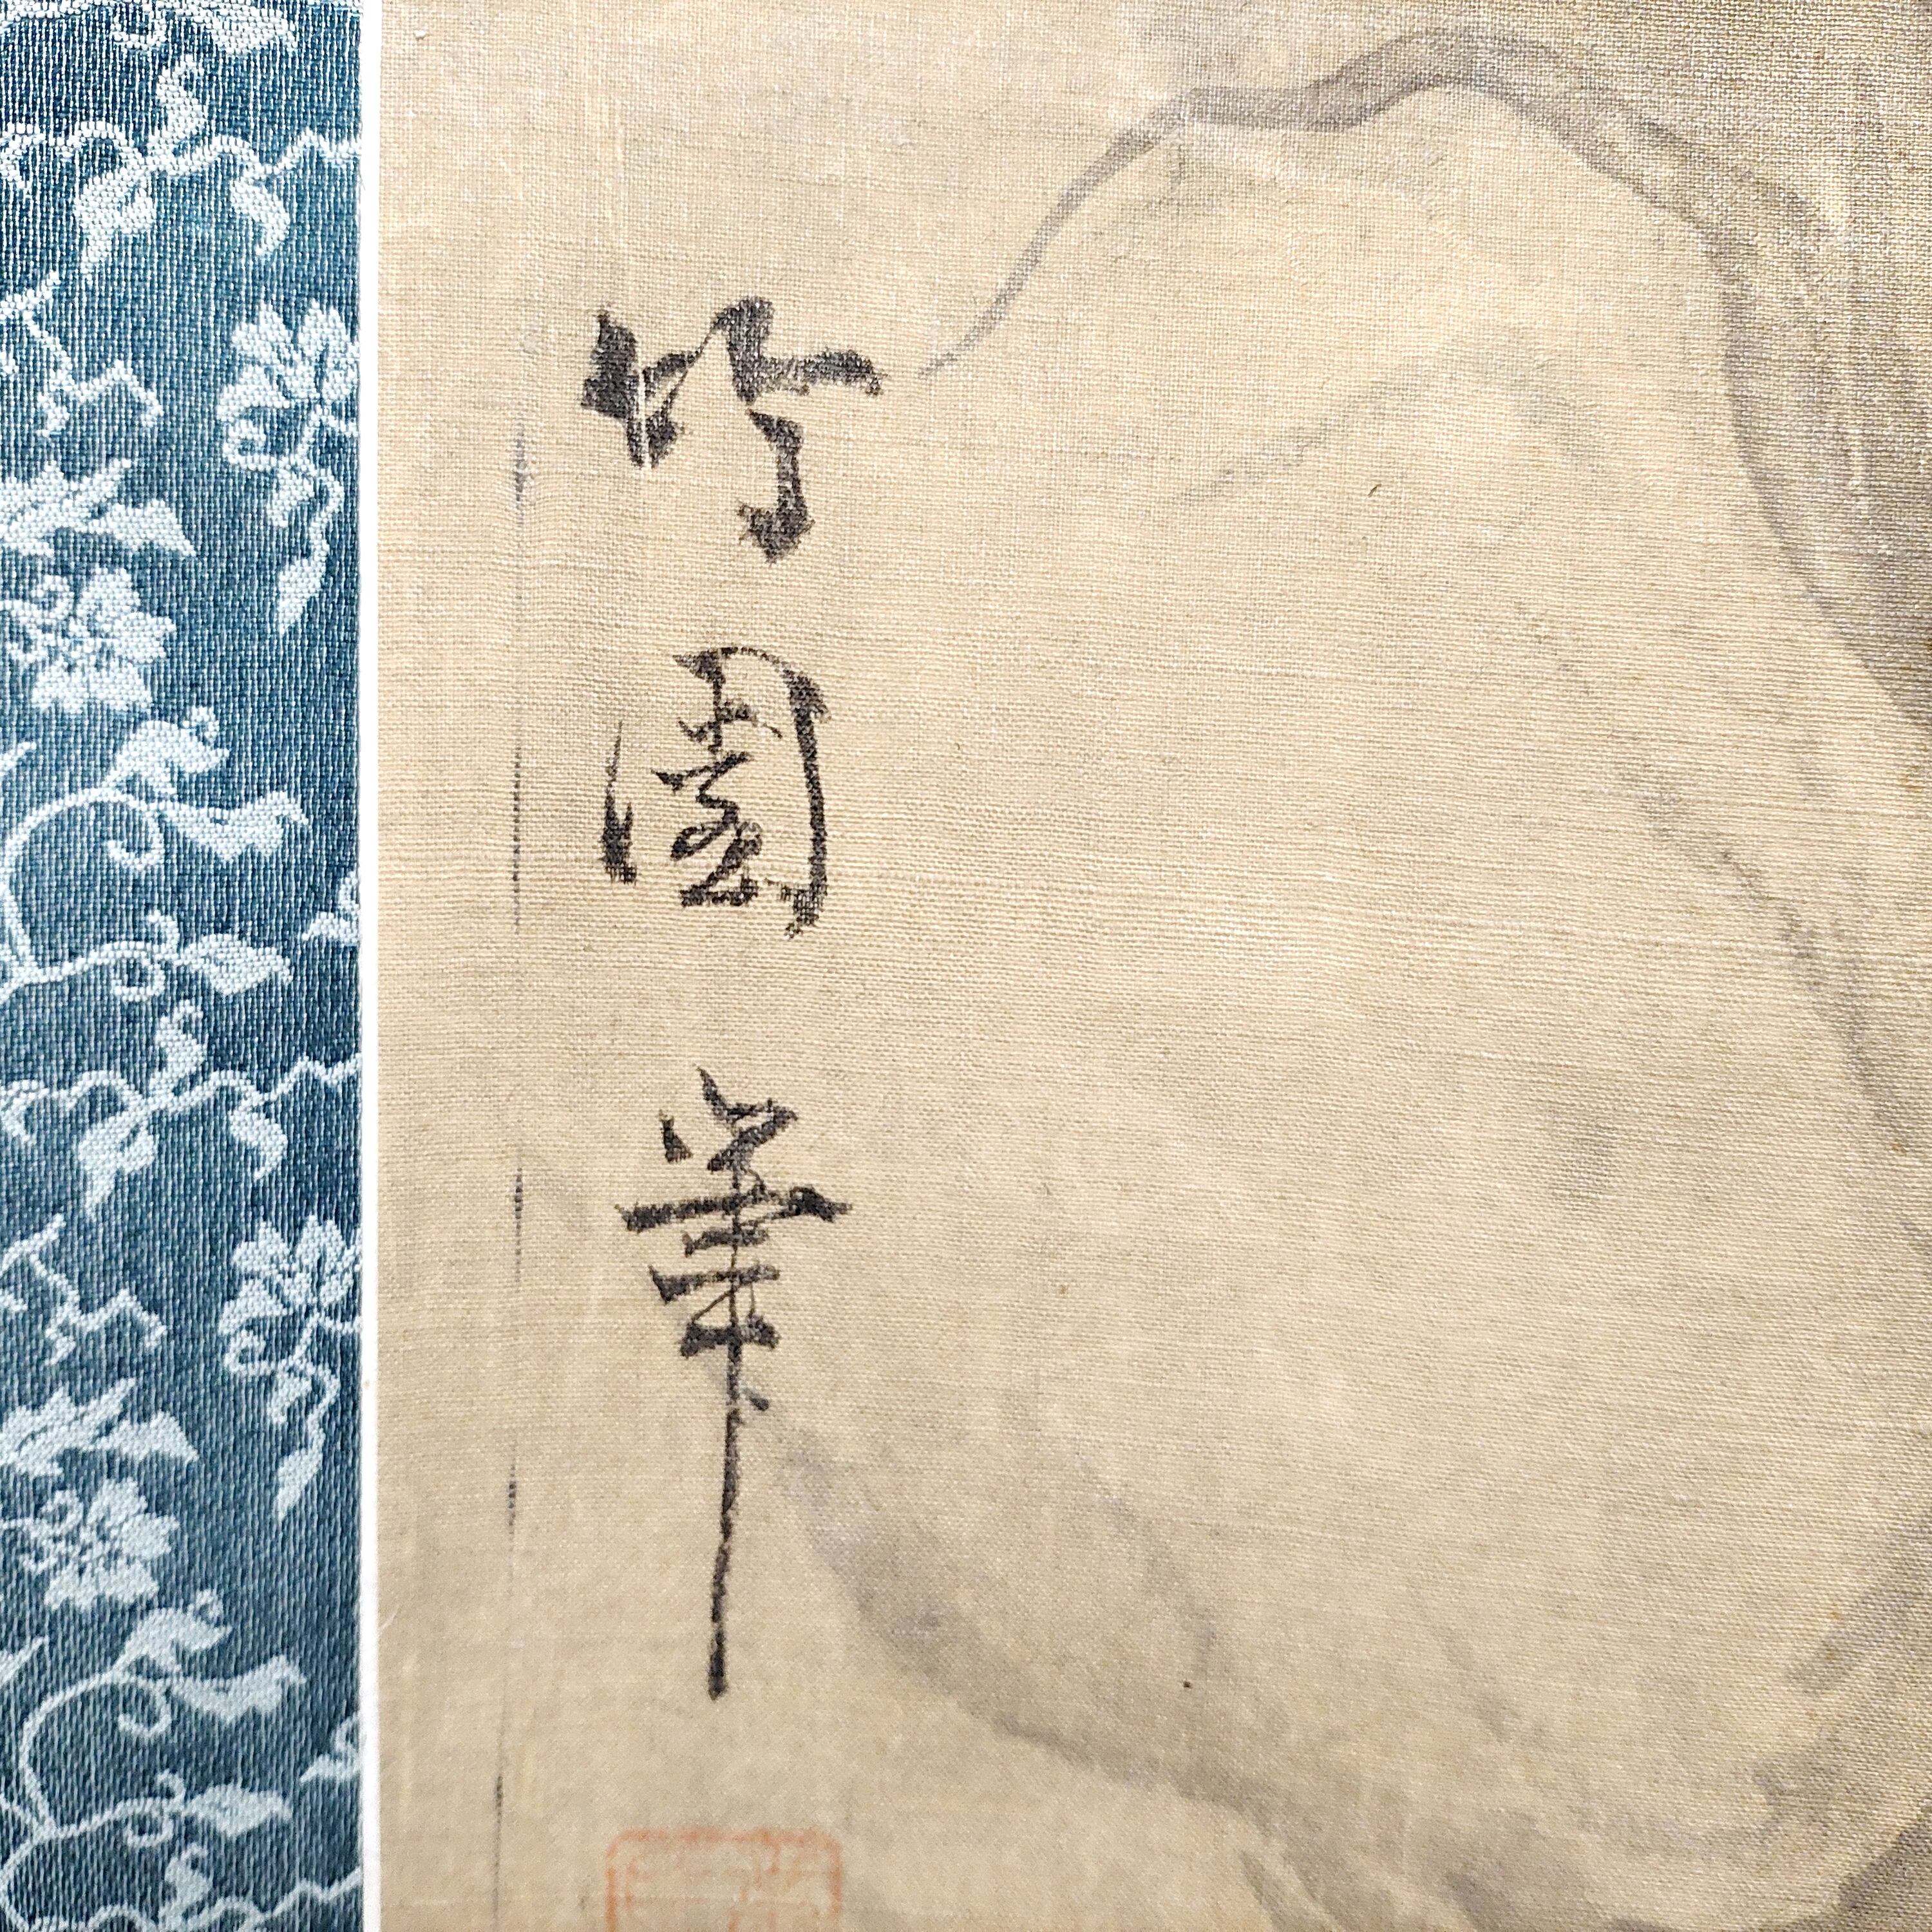 竹園筆